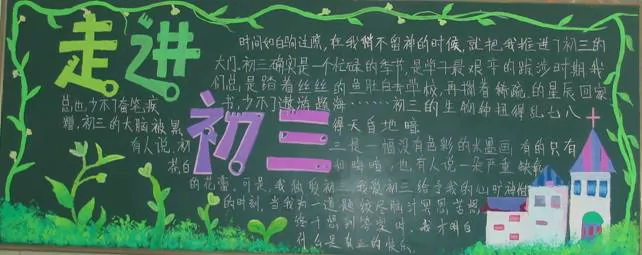 走进
初三
时间如白驹过隙,在我们不留神的时候,就把我推进了初三的
大门。初三确实是一个忙碌的季节,是学子最艰辛的跋涉时期。我
们总是踏着丝丝的鱼肚白去学校,再揣着稀疏的星辰回家
总也少不了
书,少不了遨游题海……初三的生物钟扭得乱七八
糟,初三的大脑被累
得天昏地暗
有人说,初
三是一幅没有色彩的水墨画,有的只有
花白
和晦暗,也有人说一朵严重缺氧
的花蕾,可是,我
初三,我爱初三给予我的
的时刻,当我为一道题绞尽脑汁冥思苦想
终于想到答案时,我才明白
什么是真正的快乐